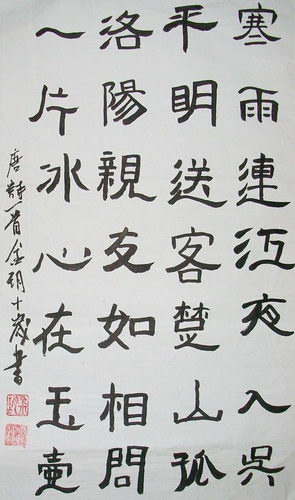 寒雨連江夜入吳
平明送客楚山孤
洛陽親友如相問
一片冰心在玉壺
唐詩一首金明十歲書